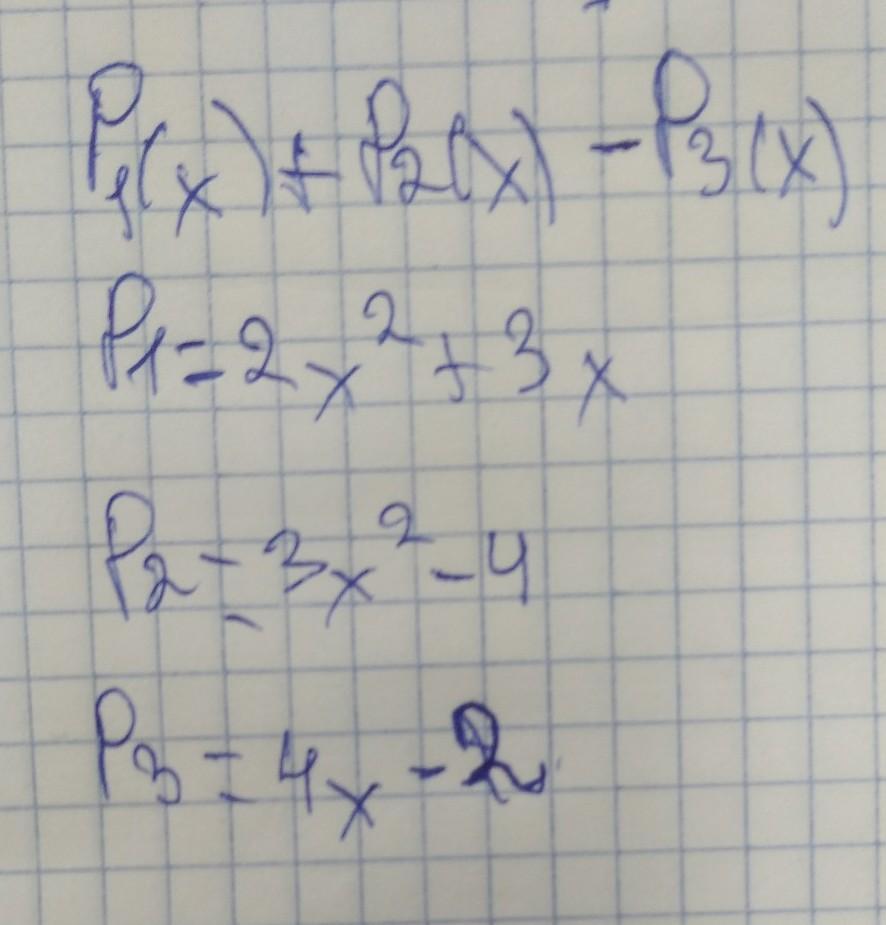 P₁(x) + P₂(x) - P₃(x)
P₁ = 2x² + 3x
P₂ = 3x² - 4
P₃ = 4x - 2